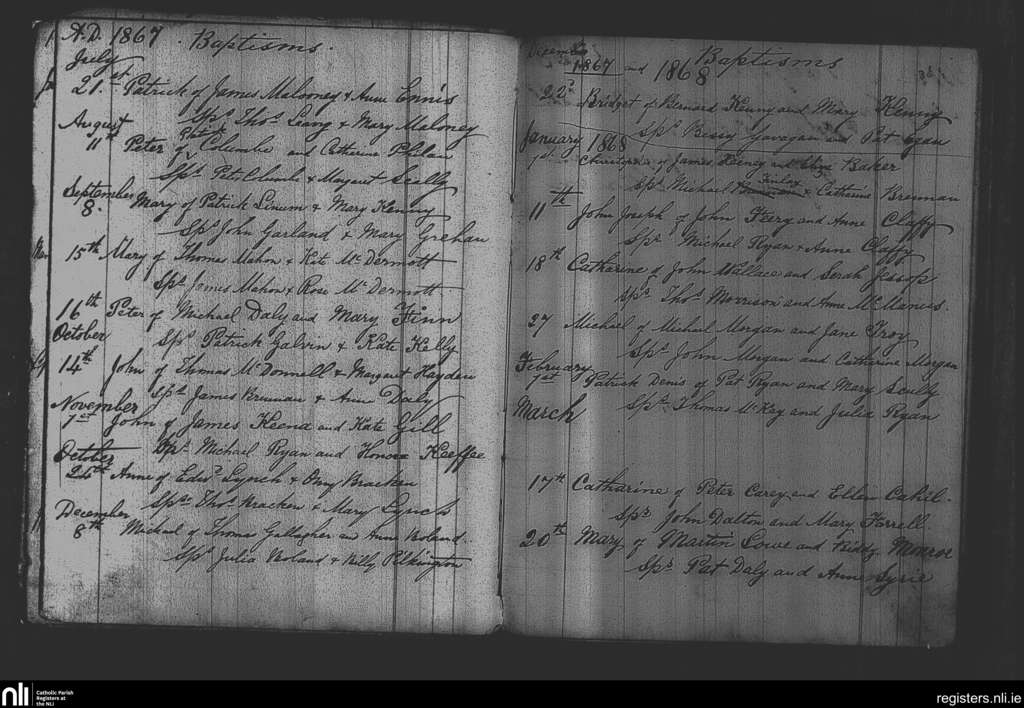 A.D. 1867 Baptisms.
July
21.st Patrick of James Maloney & Anne Ennis
Sps. Thos. Leang & Mary Maloney
August
11th Peter of Columbe and Catherine Phelan
Sps. Peter Columbe & Margaret Scully
September
8. Mary of Patrick Linum & Mary Kenny
Sps. John Garland & Mary Grehan
15th Mary of Thomas Mahon & Kate McDermott
Sps. James Mahon & Rose McDermott
16th Peter of Michael Daly and Mary Finn
October
Sps. Patrick Galvin & Kate Kelly
14th John of Thomas McDonnell & Margaret Hayden
Sps. James Brennan & Anne Daly
November
7st John of James Keena and Kate Gill
Sps. Michael Ryan and Honora Keeffee
October
24th Anne of Edwd. Lynch & Bracken
Sps. Thos. Bracken & Mary Lynch
December
8th Michael of Thomas Gallagher an Anne Boland.
Sps. Julia Boland & Billy Pilkington
December
1867 and 1868 Baptisms
22d Bridget of Bernard Kenny and Mary Kenny
Sps. Bessy Gavagan and Pat Egan
January 1868
of James Heeney and Eliza Baker
Finlay
Sps. Michael & Catharine Brennan
11th John Joseph of John Feery and Anne Claffy
Sps. Michael Ryan & Anne Claffy
18th Catharine of John Wallace and Serah Jessop
Sps. Thos. Morrison and Anne McManus.
27 Michael of Michael Morgan and Jane Troy
Sps. John Morgan and Catharine Morgan
February
7st Patrick Denis of Pat Ryan and Mary Scully
Sps. Thomas McKey and Julia Ryan
March
17th Catharine of Peter Carey and Ellen Cahil.
Sps. John Dalton and Mary Farrell
20th Mary of Martin Lowe and Biddy Monroe
Sps. Pat Daly and Anne Lyrie
nli
Catholic Parish
Registers at
the NLI
registers.nli.ie